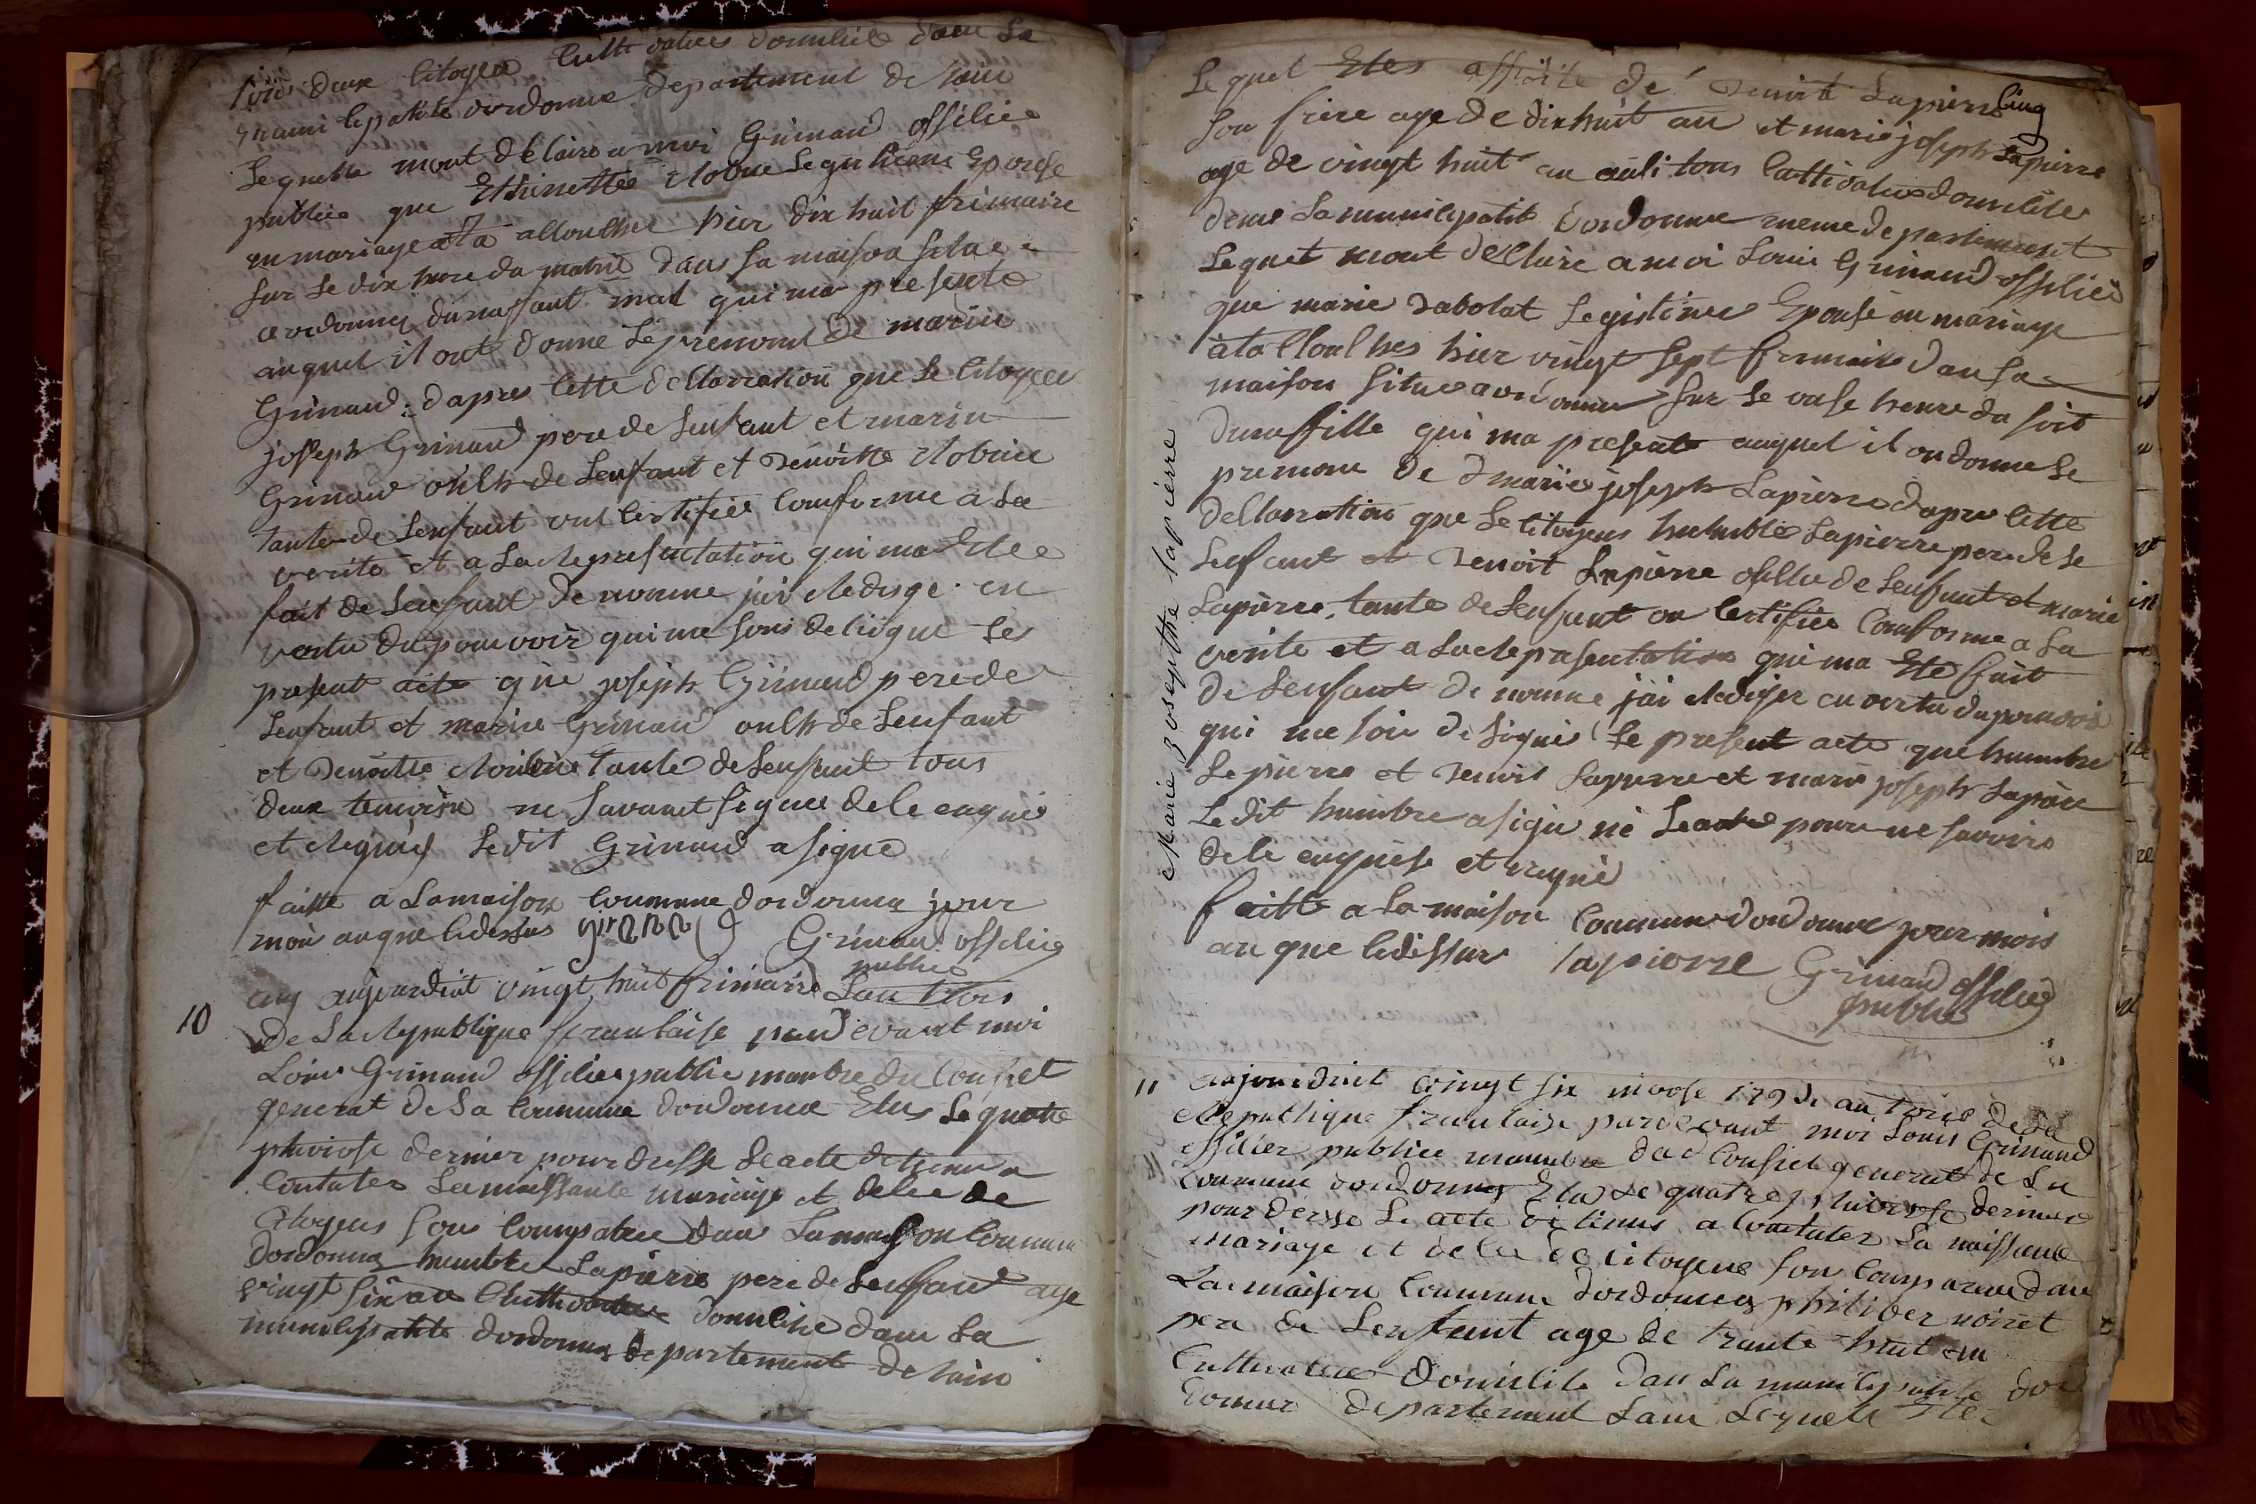 deux Citoyen Cultivateur domicilie dans La
municipalité dordonna departement de lain
Lequelle mont déclaré a moi Grinand officier
publice que Ethiennette Epouse
en mariage a ta allouchee hier dix huit frimaire
sur Le dix hure du matrin dans sa maison situe
a ordonna dun anfant mal qui ma presente
auquel il ont donne Le prenomd de marin
Grinand : dapres Cette declarration que Le Citoyen
joseph Grinand pere de Lenfant et marin
Grinand onlh de Lenfant et Denoitte
tante de Lenfant ont Certifiér Conforme a La
verite et a La Representation qui ma Etee
fait de Lenfant de nomme jai Redige en
vertu du pouvoir qui me sons deliegue Le
present acte que joseph Grinand pere de
Lenfant et marin Grinand onlh de Lenfant
et Denoitte tante de Lenfant tous
deux temoins ne savant signer de le enquis
et Requis Ledit Grinand a signe
faitte a La maison Commune dordonna jour
mois an que lidessus Grinand Grinand officier
publice
10
auj aujourdhuit vingt huit frimaire Lan trois
de La Republique francaise pardevant moi
Louis Grinand officier publice manbre du Consiel
general de La Commune dordonna Elus Le quatre
pluviose dernier pour dresse Le acte detinus a
Contater Les naissante mariage et deles de
Citoyens sons Comparue dans La maison Commune
dordonna humbler Lapierre pere de Lenfant age
vingt six an Cultivateur domilise dans La
municipalité dordonna departement de lain
Cinq
Lequel Etes assiste de Denoit Lapierre
son frère age de dix huit an et marie joseph Lapierre
age de vingt huit an tous Cultivateur domicilie
dans La municipalité dordonna meme departement
Lequel mont déclaré a moi Louis Grinand officier
que marie Rabolat Legistime Epouse en mariage
a ta llouches hier vingt sept frimaire dans sa
maison situe a ordonna sur Le onse heure da soit
duna fille qui ma presente auquel il on donne Le
prenom de marie joseph Lapierre dapre Cette
dellarration que Le Citoyens humble Lapierre pere de Le
Lenfant et Denoit Lapierre onlle de Lenfant et marie
Lapierre tante de Lenfant on Certifier Conforme a La
verite et a La Representation qui ma Ete fait
de Lenfant de nomme jai Rediger en vertu du pouvoir
qui me sois deligue Le present acte que humbre
Lapierre et Denoit Lapierre et marie joseph Lapierre
Ledit humbre a signe ne Leautre pour ne savoire
de le enquise et requi
faitte a La maison Commune dordonna jour mois
an que lidessus lapierre Grinand officier
publice
Marie Josepthe Lapierre
11
aujourdhuit vingt six nivose 179 an trois de La
Republique francaise pardevant moi Louis Grinand
officier publice manbre du Consiel general de La
Commune dordonna Elus Le quatre pluviose dernier
pour dresse Le acte detinus a Contater La naissance
mariage et deles de Citoyens son Comparue dans
La maison Commune dordonna philiber noiret
pere de Lenfant age de trante huit an
Cultivateur domicile dans La municipalité dor
donna departement Lain Lequels Etes